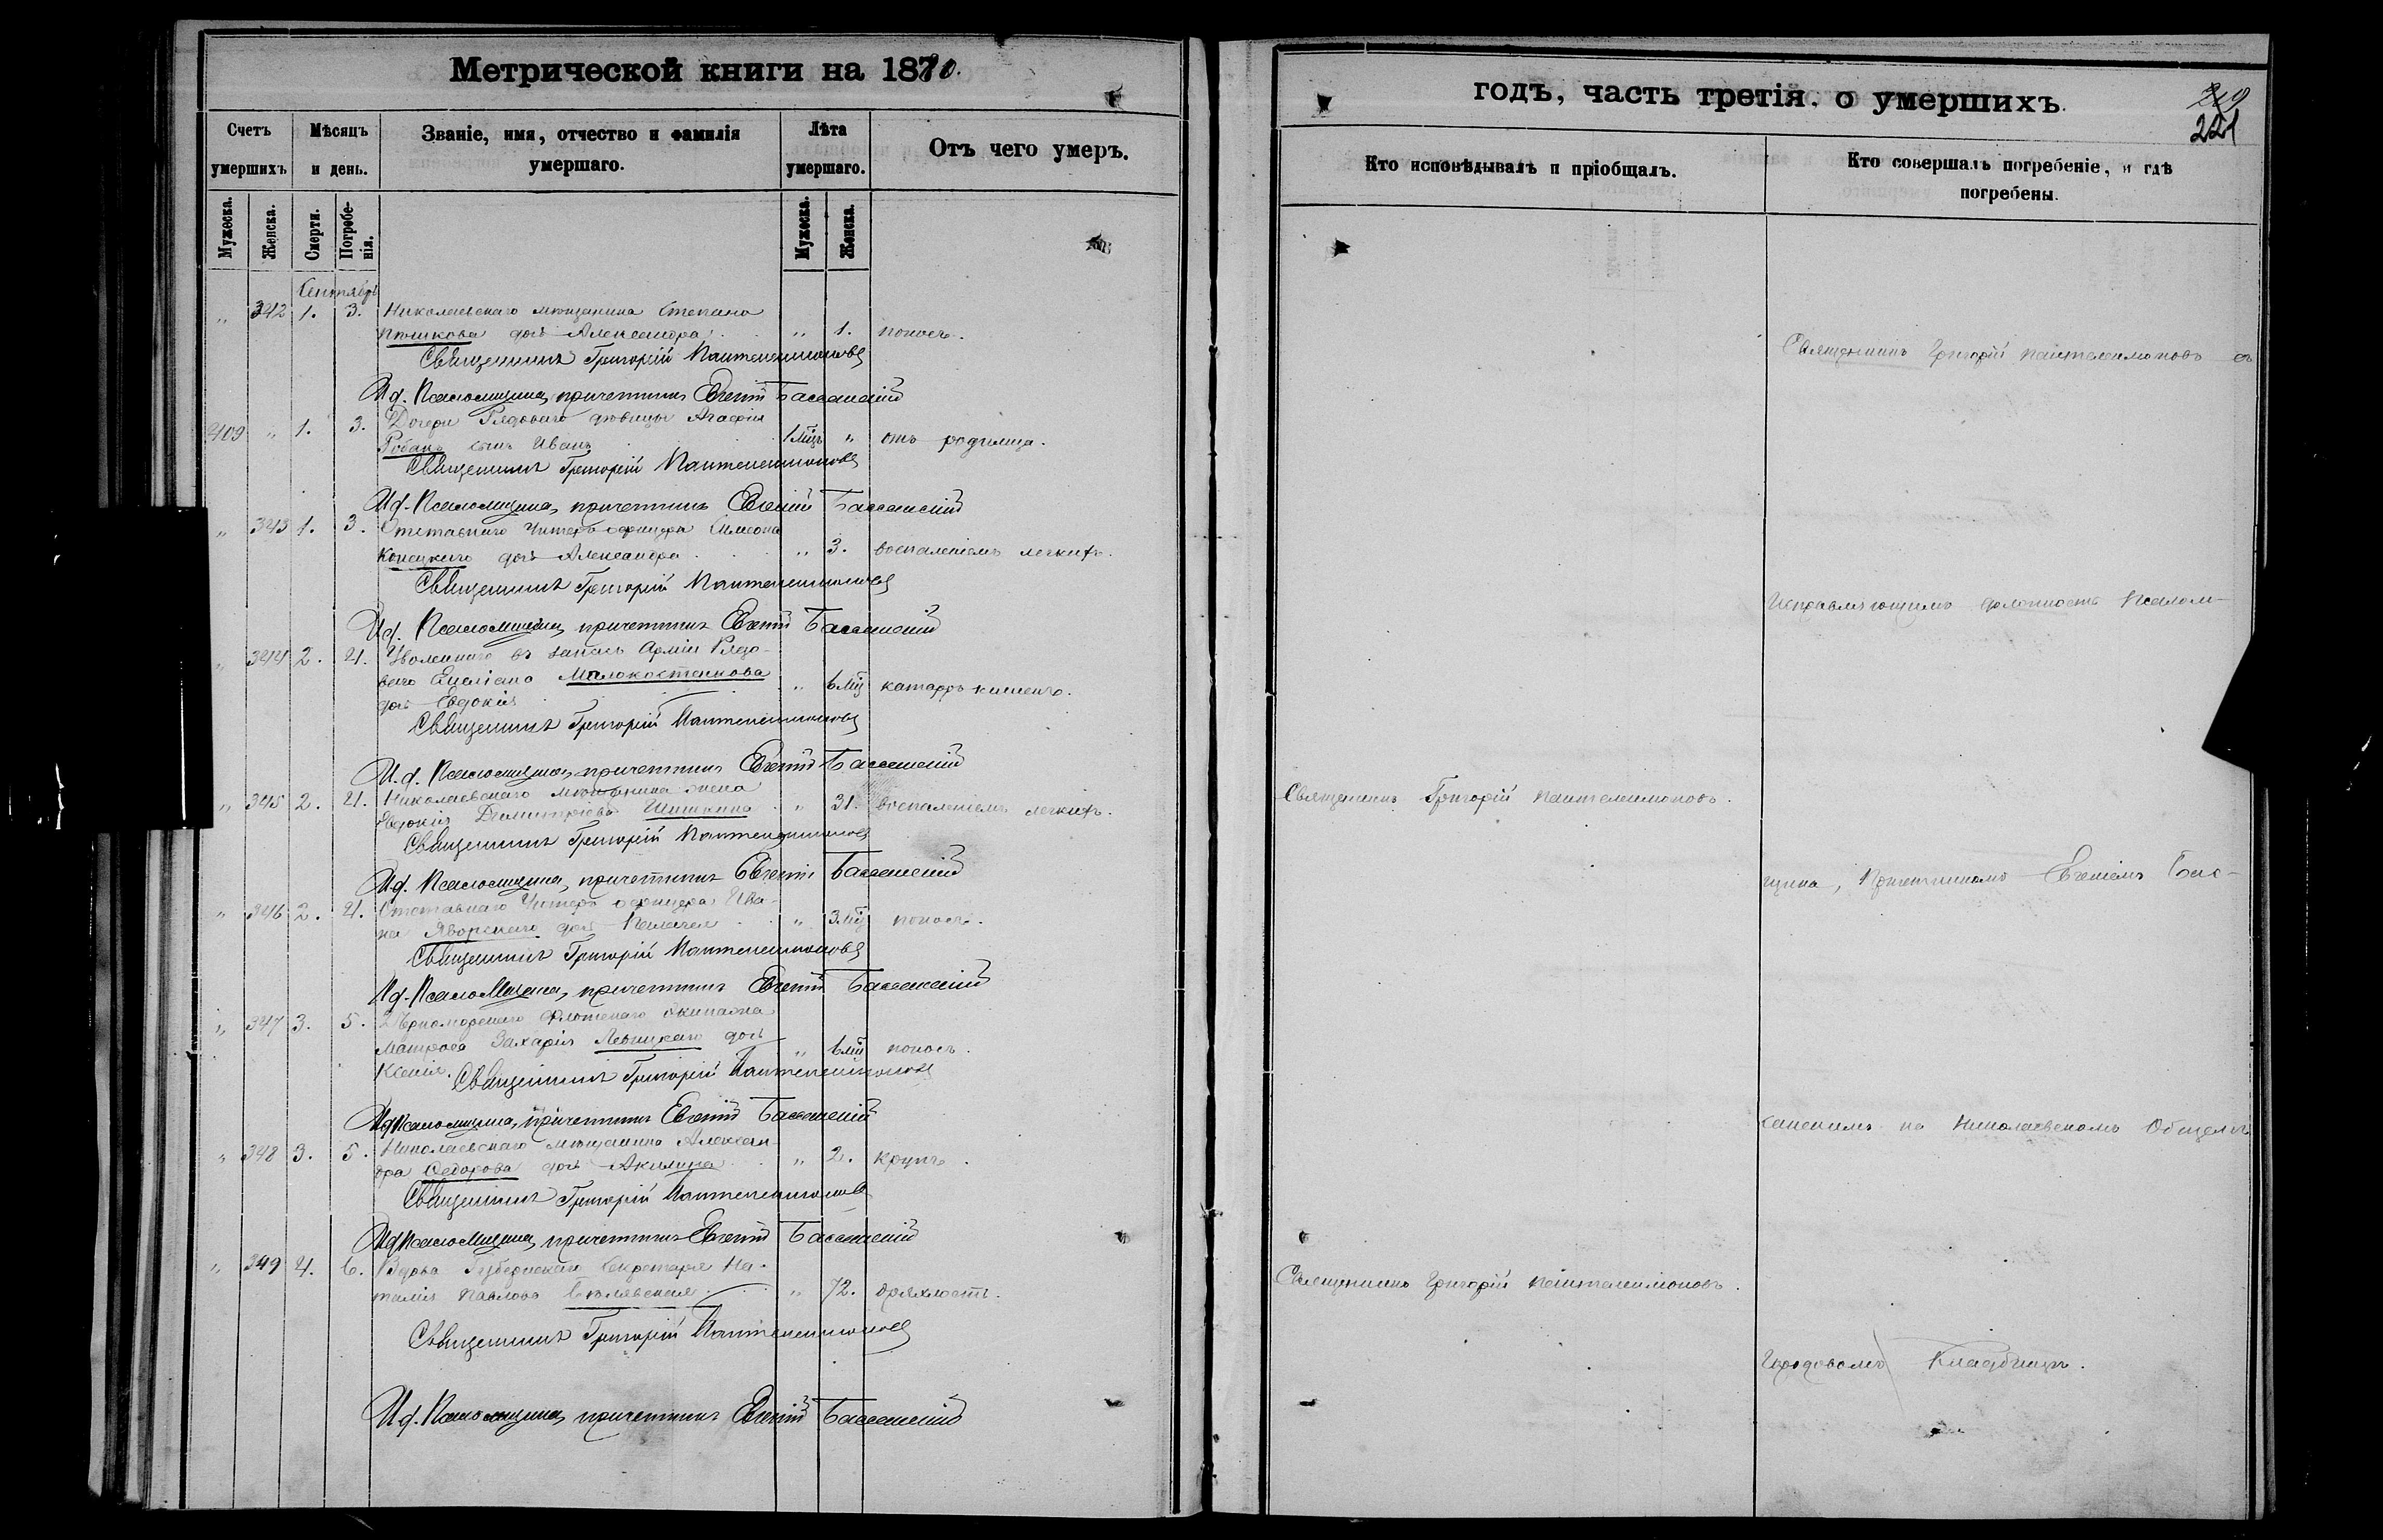 Метрической книги на 1880.
Счетъ умершихъ
Мѣсяцъ и день.
Званіе, имя, отчество и фамилія умершаго.
Лѣта умершаго.
Отъ чего умеръ.
Мужеска.
Женска.
Смерти.
Погребенія.
Мужеска.
Женска.
Сентябрь
" 342 1. 3. Николаевскаго мѣщанина Степана
дочь Александра " 1. поносъ.
Священникъ Григорій Пантелеимоновъ
И д. Псаломщика, причетникъ Евгеній
409 " 1. 3. Дочери Рядоваго дѣвицы Агафіи
сынъ Иванъ 1 мѣц " отъ родимца.
Священникъ Григорій Пантелеимоновъ
И д. Псаломщика, причетникъ Евгеній
" 343 1. 3. Отставнаго Унтеръ-офицера Симеона
Конецкаго дочь Александра " 3. воспаленіемъ легкихъ.
Священникъ Григорій Пантелеимоновъ
И д. Псаломщика, причетникъ Евгеній
" 344 2. 4. Уволеннаго въ запасъ Арміи Рядо-
ваго Емеліана Малокостенкова " 6 мѣц катарръ кишекъ.
дочь Евдокія
Священникъ Григорій Пантелеимоновъ
И. д. Псаломщика, причетникъ Евгеній
" 345 2. 4. Николаевскаго мѣщанина жена
Евдокія Димитріева Шишкина " 31. воспаленіемъ легкихъ.
Священникъ Григорій Пантелеимоновъ
И д. Псаломщика, причетникъ Евгеній
" 346 2. 4. Отставнаго Унтеръ офицера Ива-
на Яворскаго дочь Пелагея " 3 мѣц поносъ.
Священникъ Григорій Пантелеимоновъ
И д. Псаломщика, причетникъ Евгеній
" 347 3. 5. 2 Черноморскаго Флотскаго экипажа
матроса Захарія Левицкаго дочь " 6 мѣц поносъ.
Ксенія. Священникъ Григорій Пантелеимоновъ
И д Псаломщика, причетникъ Евгеній
" 348 3. 5. Николаевскаго мѣщанина Алексан-
дра Федорова дочь Акилина " 2. крупъ.
Священникъ Григорій Пантелеимоновъ
И д Псаломщика, причетникъ Евгеній
" 349 4. 6. Вдова Губернскаго Секретаря На-
талія Павлова " 72. дряхлость.
Священникъ Григорій Пантелеимоновъ
И д. Псаломщика, причетникъ Евгеній
годъ, часть третія, о умершихъ.
221
Кто исповѣдывалъ и пріобщалъ.
Кто совершалъ погребеніе, и гдѣ погребены.
Священникъ Григорій Пантелеимоновъ съ
Исправляющимъ должность Псалом-
Священникъ Григорій Пантелеимоновъ.
щика, Причетникомъ Евгеніемъ
на Николаевскомъ Общемъ
Священникъ Григорій Пантелеимоновъ.
Городовомъ Кладбищѣ.